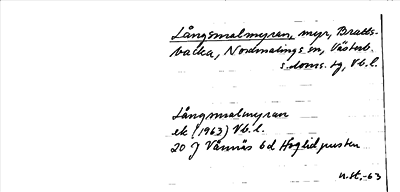 Långsmalmyran, myr, Bratts-
backa, Nordmalings sn, Västerb.
s.doms. tg, Vb. l.
Långsmalmyran
ek (1963) Vb. l.
20 J Vännäs 6d Höglidmusten
n.st.-63